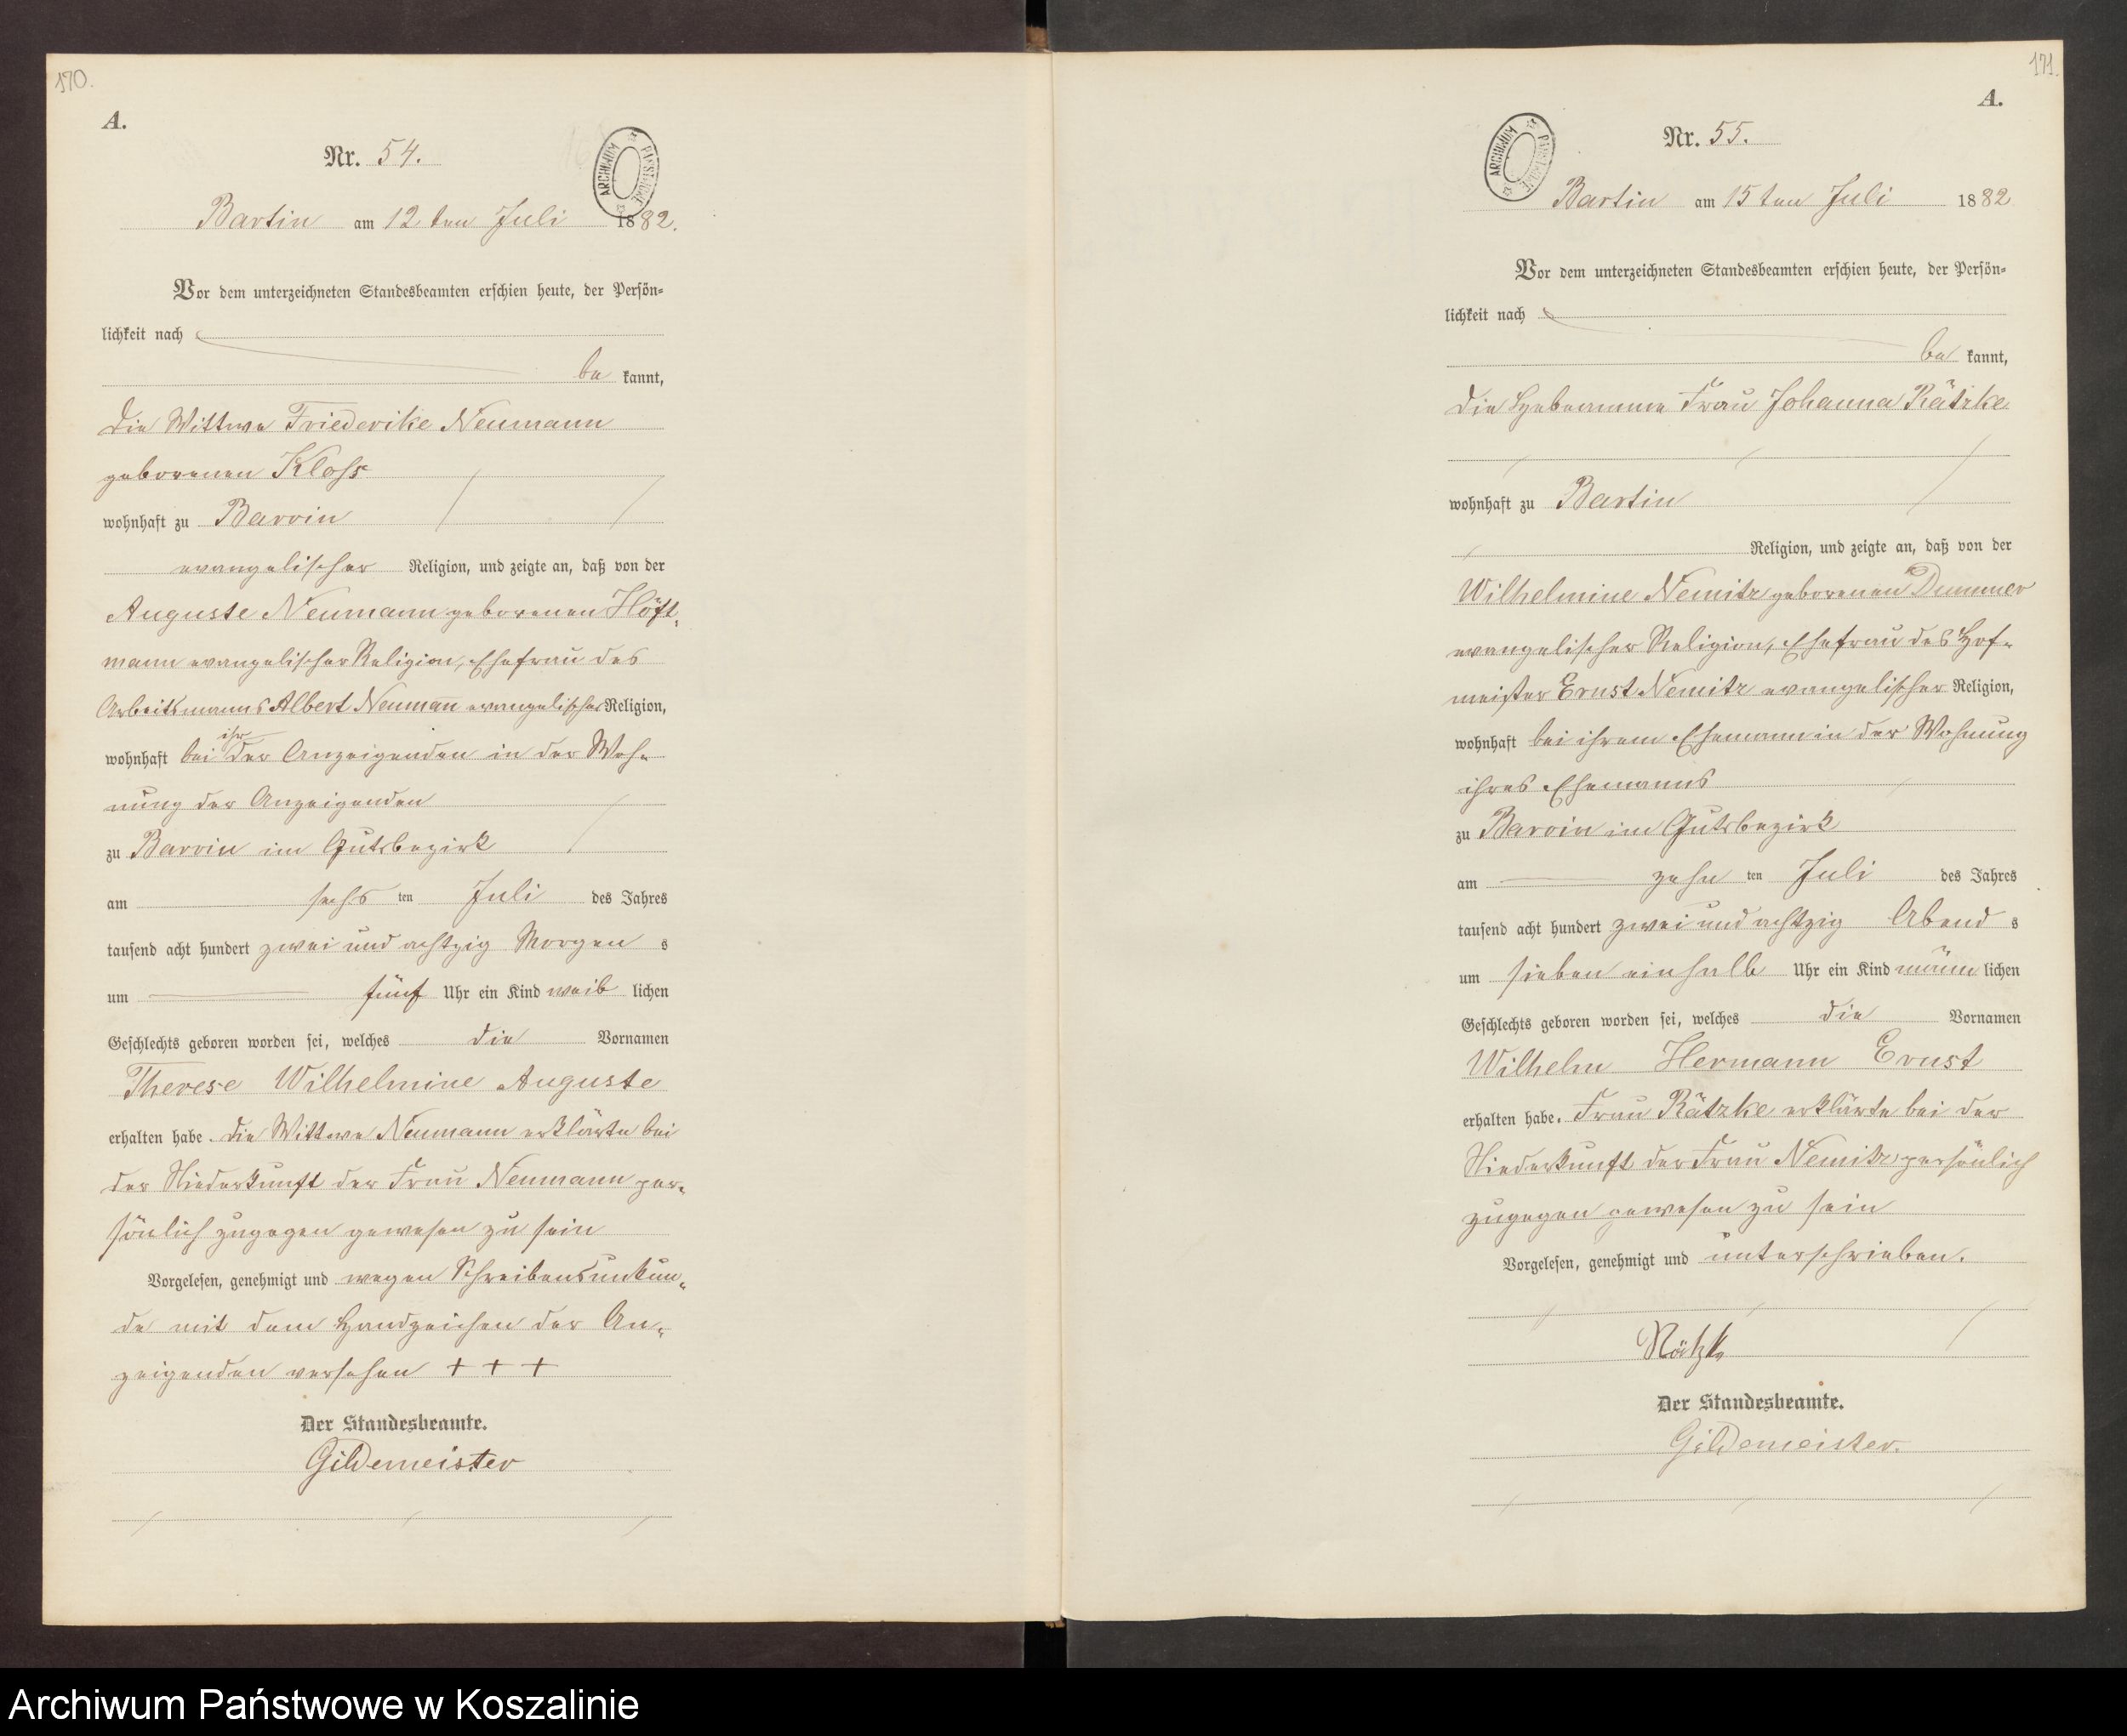 170.
A.
Nr. 54.
ARCHIWUM PAŃSTWOWE
Bartin am 12 ten Juli 1882.
Vor dem unterzeichneten Standesbeamten erschien heute, der Persön-
lichkeit nach
be kannt,
die Wittwe Friederike Neumann
geborenen Kloss
wohnhaft zu Barvin
evangelischer Religion, und zeigte an, daß von der
Auguste Neumann geborenen Höft-
mann evangelischer Religion, Ehefrau des
Arbeitsmanns Albert Neumann evangelischer Religion,
wohnhaft bei ihr der Anzeigenden in der Woh-
nung der Anzeigenden
zu Barvin im Gutsbezirk
am sechs ten Juli des Jahres
tausend acht hundert zwei und achtzig Morgen s
um fünf Uhr ein Kind weib lichen
Geschlechts geboren worden sei, welches die Vornamen
Therese Wilhelmine Auguste
erhalten habe. Die Wittwe Neumann erklärte bei
der Niederkunft der Frau Neumann per-
sönlich zugegen gewesen zu sein
Vorgelesen, genehmigt und wegen Schreibensunkun-
de mit dem Handzeichen der An-
zeigenden versehen + + +
Der Standesbeamte.
Gildemeister
171.
A.
Nr. 55.
ARCHIWUM PAŃSTWOWE
Bartin am 15 ten Juli 1882
Vor dem unterzeichneten Standesbeamten erschien heute, der Persön-
lichkeit nach
be kannt,
die Hebeamme Frau Johanna Rätzke
wohnhaft zu Bartin
Religion, und zeigte an, daß von der
Wilhelmine Nemitz geborenen Dummer
evangelischer Religion, Ehefrau des Hof-
meister Ernst Nemitz evangelischer Religion,
wohnhaft bei ihrem Ehemann in der Wohnung
ihres Ehemanns
zu Barvin im Gutsbezirk
am zehn ten Juli des Jahres
tausend acht hundert zwei und achtzig Abend s
um sieben einhalb Uhr ein Kind männ lichen
Geschlechts geboren worden sei, welches die Vornamen
Wilhelm Hermann Ernst
erhalten habe. Frau Rätzke erklärte bei der
Niederkunft der Frau Nemitz persönlich
zugegen gewesen zu sein
Vorgelesen, genehmigt und unterschrieben.
Rätzke
Der Standesbeamte.
Gildemeister.
Archiwum Państwowe w Koszalinie